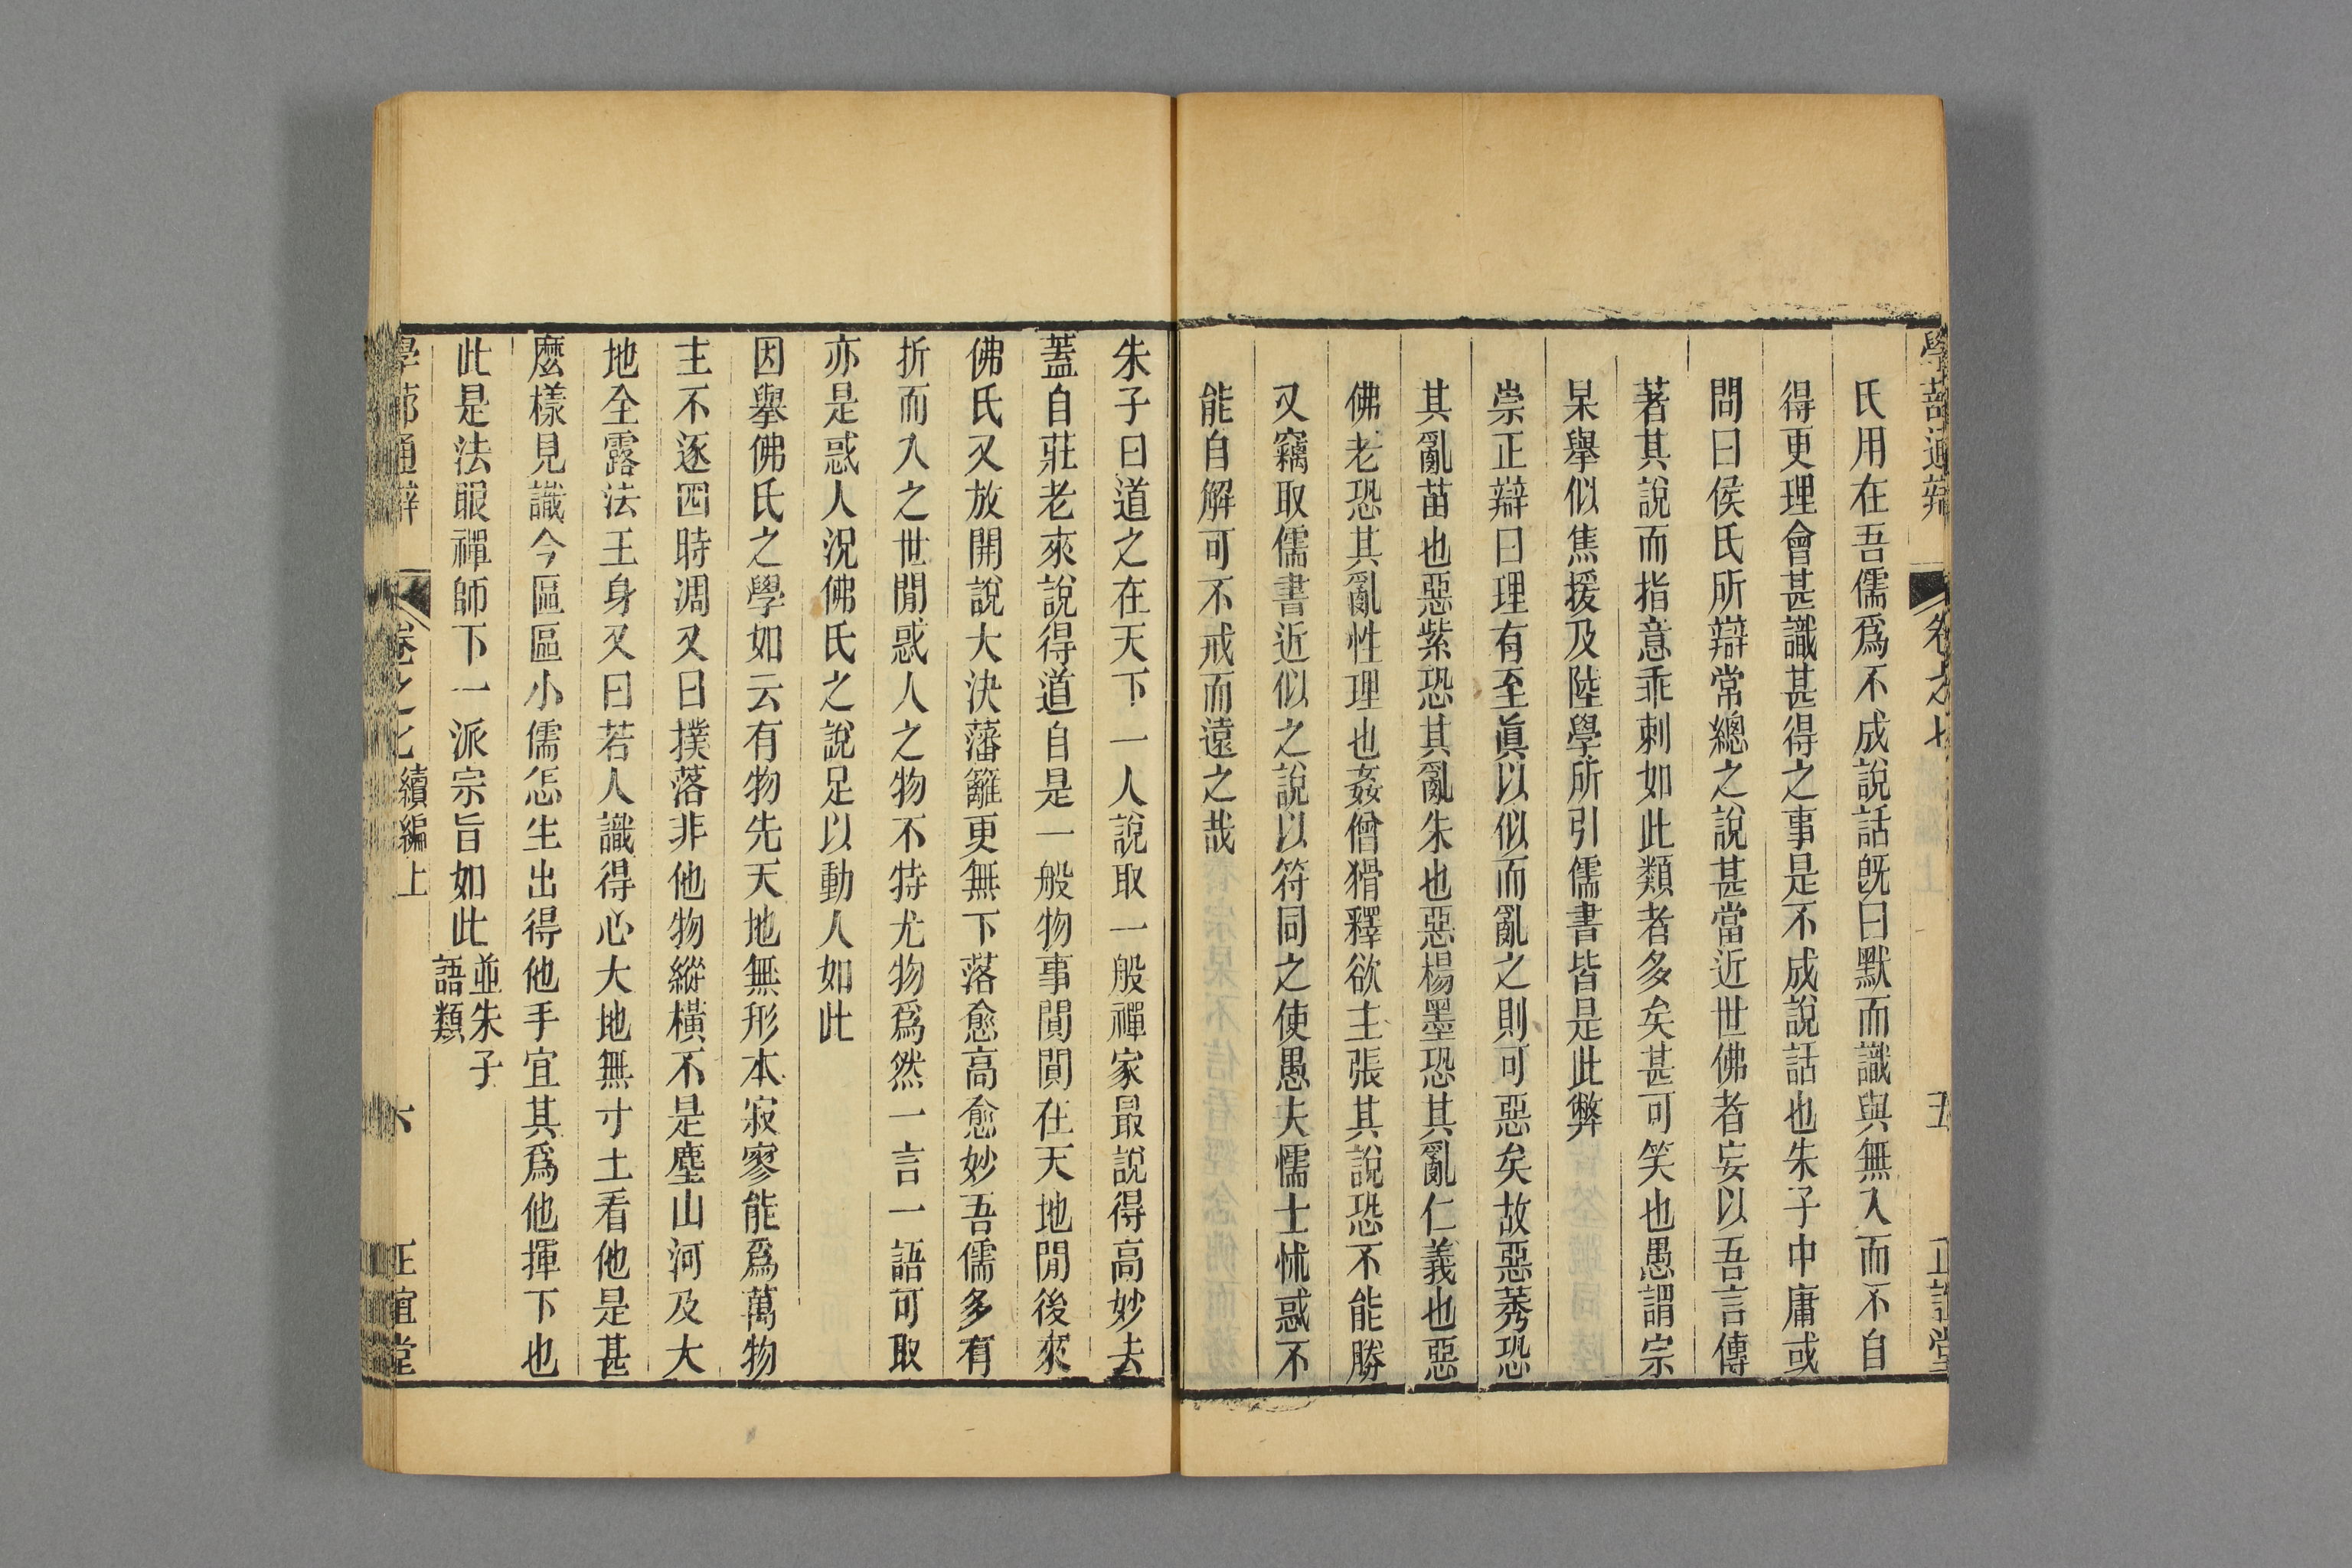 學蔀通辯 卷之七 五 正誼堂
氏用在吾儒爲不成說話旣曰默而識與無入而不自
得更理會甚識甚得之事是不成說話也朱子中庸或
問曰侯氏所辯常總之說甚當近世佛者妄以吾言傳
著其說而指意乖刺如此類者多矣甚可笑也愚謂宗
杲舉似焦援及陸學所引儒書皆是此弊
崇正辯曰理有至眞以似而亂之則可惡矣故惡莠恐
其亂苗也惡紫恐其亂朱也惡楊墨恐其亂仁義也惡
佛老恐其亂性理也姦僧猾釋欲主張其說恐不能勝
又竊取儒書近似之說以符同之使愚夫懦士怵惑不
能自解可不戒而遠之哉
朱子曰道之在天下一人說取一般禪家最說得高妙去
蓋自莊老來說得道自是一般物事閴閴在天地閒後來
佛氏又放開說大決藩籬更無下落愈高愈妙吾儒多有
折而入之世閒惑人之物不特尤物爲然一言一語可取
亦是惑人況佛氏之說足以動人如此
因舉佛氏之學如云有物先天地無形本寂寥能爲萬物
主不逐四時凋又曰撲落非他物縱橫不是塵山河及大
地全露法王身又曰若人識得心大地無寸土看他是甚
麼樣見識今區區小儒怎生出得他手宜其爲他揮下也
此是法眼禪師下一派宗旨如此並朱子語類
學蔀通辯 卷之七 續編上 六 正誼堂